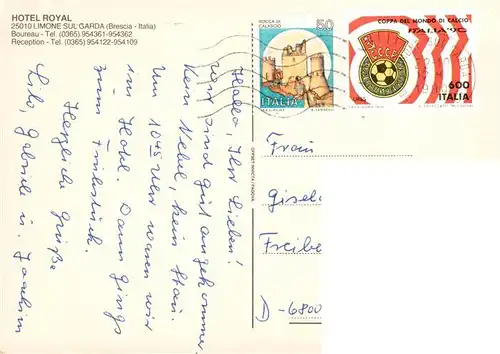 HOTEL ROYAL
25010 LIMONE SUL GARDA (Brescia - Italia)
Boureau - Tel. (0365) 954361-954362
Reception - Tel. (0365) 954122-954109
Hallo, Ihr Lieben!
Wir sind gut angekommen.
Kein Nebel, kein Stau.
Um 10 45 Uhr waren wir
im Hotel. Dann gings
zum Frühstück.
Herzliche Grüße
Gabriele u. Joachim
ROCCA DI CALASCIO
50
ITALIA
COPPA DEL MONDO DI CALCIO
ITALIA '90
C.C.C.P.
600
ITALIA
Frau
Gisel
Freibe
D-6800